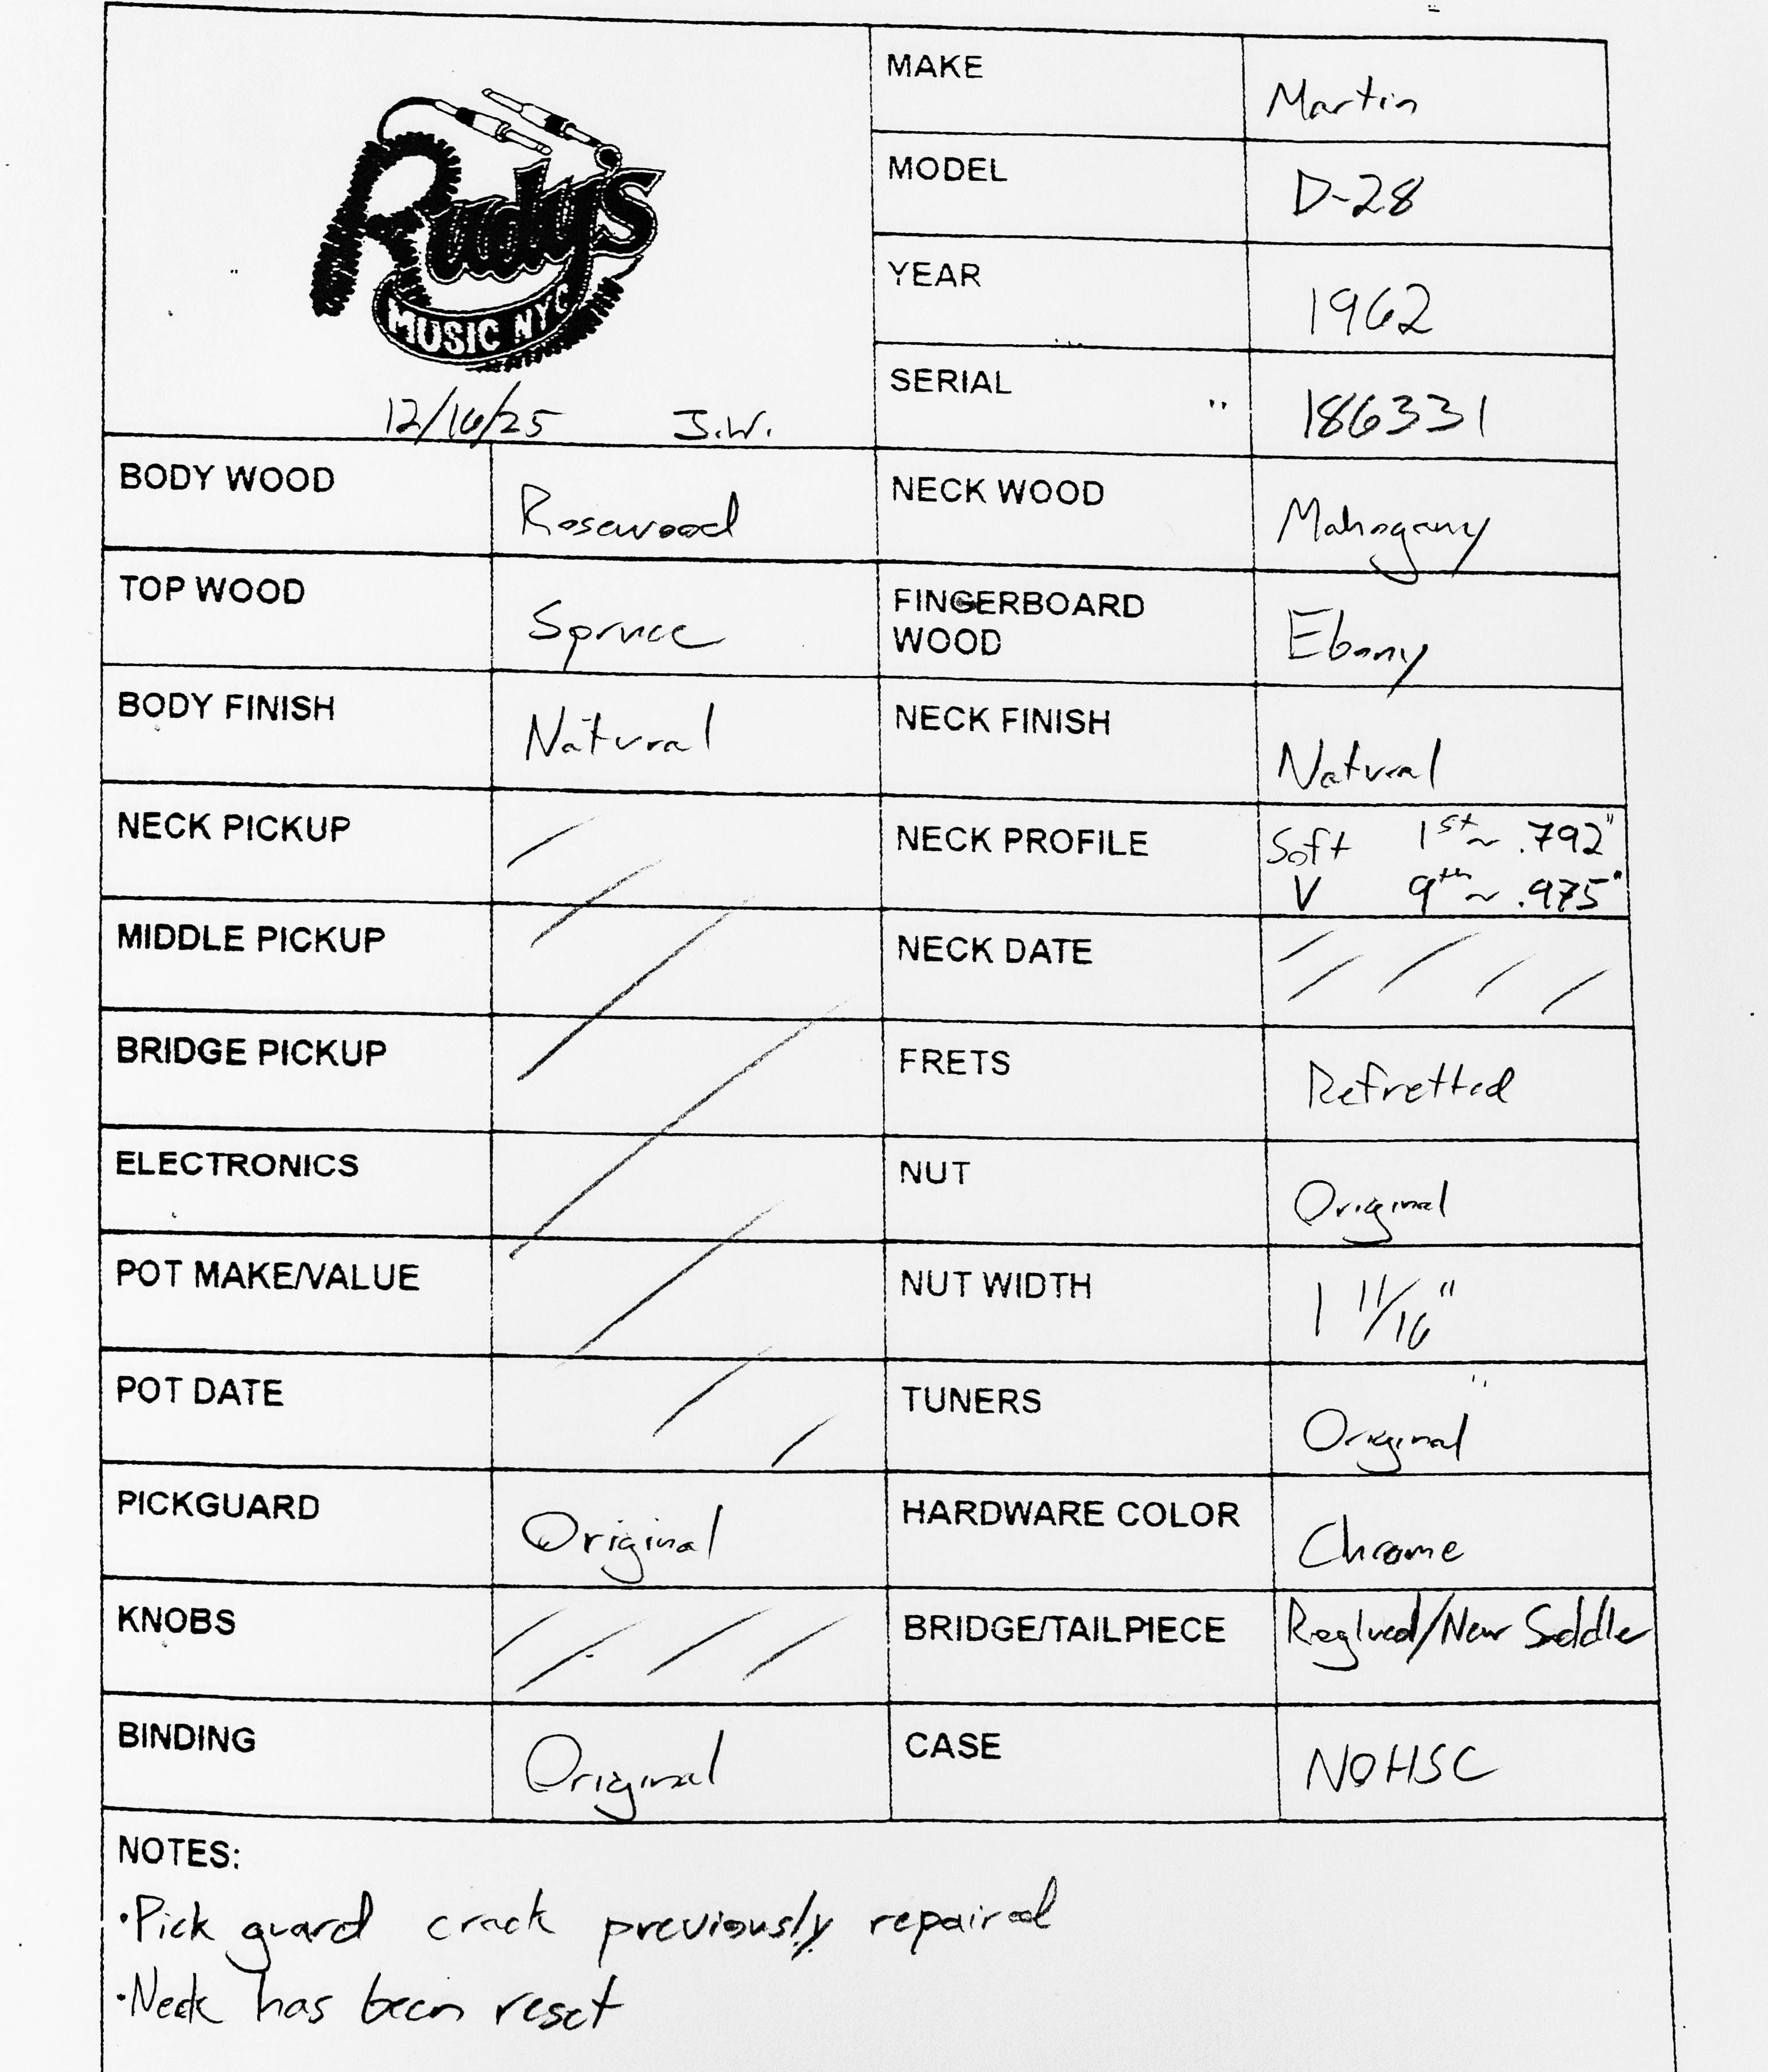 Rudy's
MUSIC NYC
12/16/25 J.W.
MAKE Martin
MODEL D-28
YEAR 1962
SERIAL 186331
BODY WOOD Rosewood NECK WOOD Mahogany
TOP WOOD Spruce FINGERBOARD
WOOD Ebony
BODY FINISH Natural NECK FINISH Natural
NECK PICKUP NECK PROFILE Soft 1st ~ .792"
V 9th ~ .975"
MIDDLE PICKUP NECK DATE
BRIDGE PICKUP FRETS Refretted
ELECTRONICS NUT Original
POT MAKE/VALUE NUT WIDTH 1 11/16"
POT DATE TUNERS Original
PICKGUARD Original HARDWARE COLOR Chrome
KNOBS BRIDGE/TAILPIECE Reglued/New Saddle
BINDING Original CASE NOHSC
NOTES:
·Pick guard crack previously repaired
·Neck has been reset